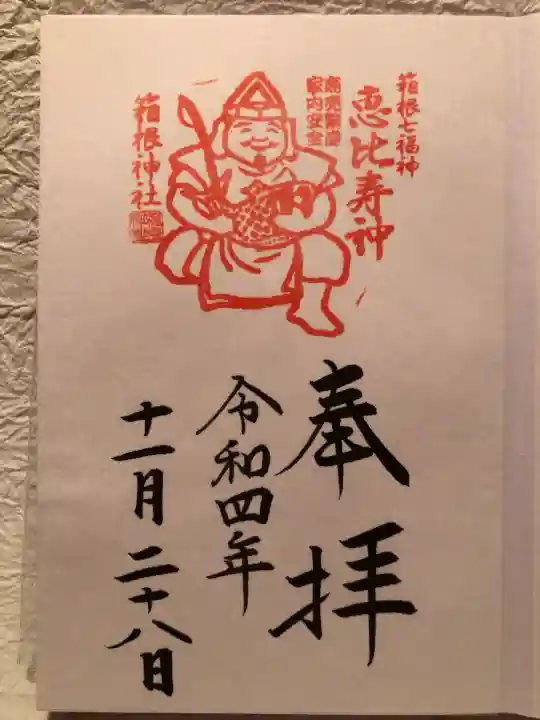 箱根七福神
恵比寿神
商売繁盛
家内安全
箱根神社
奉拝
令和四年
十一月二十八日